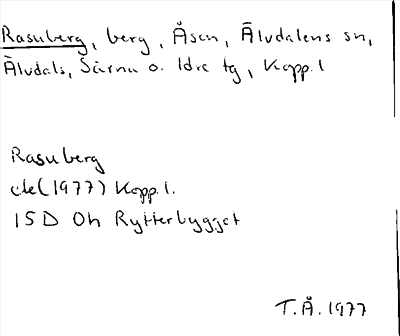 Rasuberg, berg, Åsen, Älvdalens sn,
Älvdals, Särna o. Idre tg, Kopp. l
Rasuberg
ek(1977) Kopp. l.
15D Oh Rytterbygget
T.Å. 1977